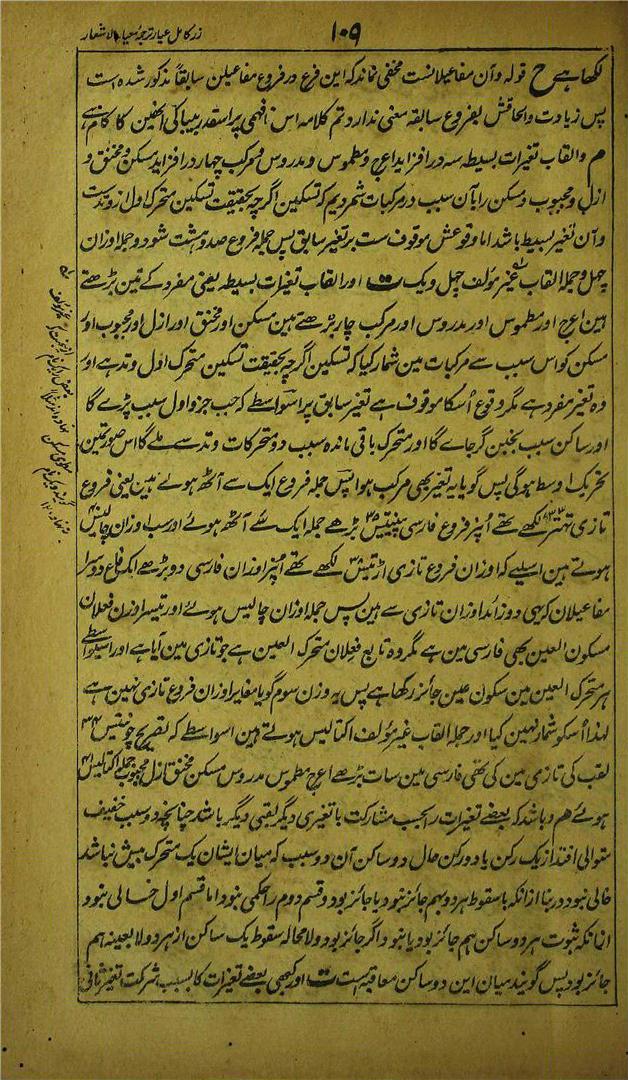 ۱۰۹
زر کامل عیار ترجمۂ معیار الاشعار
لکھا ہے ح قولہ وآن مفاعیلانست مخفی نماند کہ این فرع در فروع مفاعیلن سابقاً مذکور شدہ است
پس زیادت والحاقش بفروع سابقہ معنی ندارد تم کلامہ اس نافہمی پر اسقدر بیباکی انھین کا کام ہے
م والقاب تغیرات بسیطہ سہ در افزاید اعرج ومطموس ومدروس ومرکب چہار در افزاید مسکن ومخنق و
ازل ومجبوب ومسکن را بآن سبب در مرکبات شمردیم کہ تسکین اگرچہ بحقیقت تسکین متحرک اول از وتدست
وآن تغیر بسیط باشد اما وقوعش موقوف ست بر تغیر سابق پس جملہ فروع صد وہشت شود وجملہ اوزان
چہل وجملہ القاب غیر مؤلف چہل ویک ت اور القاب تغیرات بسیطہ یعنی مفرد کے تین بڑھتے
ہین اعرج اور مطموس اور مدروس اور مرکب چار بڑھے ہین مسکن اور مخنق اور ازل اور مجبوب اور
مسکن کو اس سبب سے مرکبات مین شمار کیا کہ تسکین اگرچہ بحقیقت تسکین متحرک اول وتد ہے اور
وہ تغیر مفرد ہے مگر وقوع اُسکا موقوف ہے تغیر سابق پر اسواسطے کہ جب جزو اول سبب پڑے گا
اور ساکن سبب بخبن گر جاے گا اور متحرک باقی ماندہ سبب دو متحرکات وتد سے ملے گا اس صورتمین
تحریک اوسط ہوگی پس گویا یہ تغیر بھی مرکب ہوا پس جملہ فروع ایک سے آٹھ ہوئے ہین یعنی فروع
تازی تہتر لکھے تھے اُنپر فروع فارسی پینتیس ۳۵ بڑھے جملہ ایک سے آٹھ ہوئے اور سب اوزان چالیس ۴۰
ہوتے ہین اسلیے کہ اوزان فروع تازی اڑتیس ۳۸ لکھے تھے اُنپر اوزان فارسی دو بڑھے ایک فاع دوسرا
مفاعیلان کہ یہی دو زائد اوزان تازی سے ہین پس جملہ اوزان چالیس ہوئے اور تیسرا وزن فعلان
مسکون العین بھی فارسی مین ہے مگر وہ تابع فعلان متحرک العین ہے جو تازی مین آیا ہے اور اسواسطے
ہر متحرک العین مین سکون عین جائز رکھا ہے پس یہ وزن سوم گویا مغایر اوزان فروع تازی نہین ہے
لہذا اُسکو شمار نہین کیا اور جملہ القاب غیر مؤلف اکتالیس ہوتے ہین اسواسطے کہ بتصریح چونتیس ۳۴
لقب کی تازی مین کی تھی فارسی مین سات بڑھے اعرج مطموس مدروس مسکن مخنق ازل مجبوب جملہ اکتالیس ۴۱
ہوئے م وباشد کہ بعضے تغیرات را بحسب مشارکت با تغیری دیگر لقبی دیگر باشد چنانچہ دو سبب خفیف
متوالی افتد از یک رکن یا دو رکن حال دو ساکن آن دو سبب کہ میان ایشان یک متحرک بیش نباشد
خالی نبود در بنا از انکہ باسقوط ہر دو بہم جائز نبود یا جائز بود وقسم دوم را حکمی نبود اما قسم اول خالی نبود
از انکہ ثبوت ہر دو ساکن ہم جائز بود یا نبود اگر جائز بود ولا محالہ سقوط یک ساکن از ہر دو لا بعینہ ہم
جائز بود پس گویند میان این دو ساکن معاقبہ است ت اور کبھی بعضے تغیرات کا بسبب شرکت تغیر ثانی